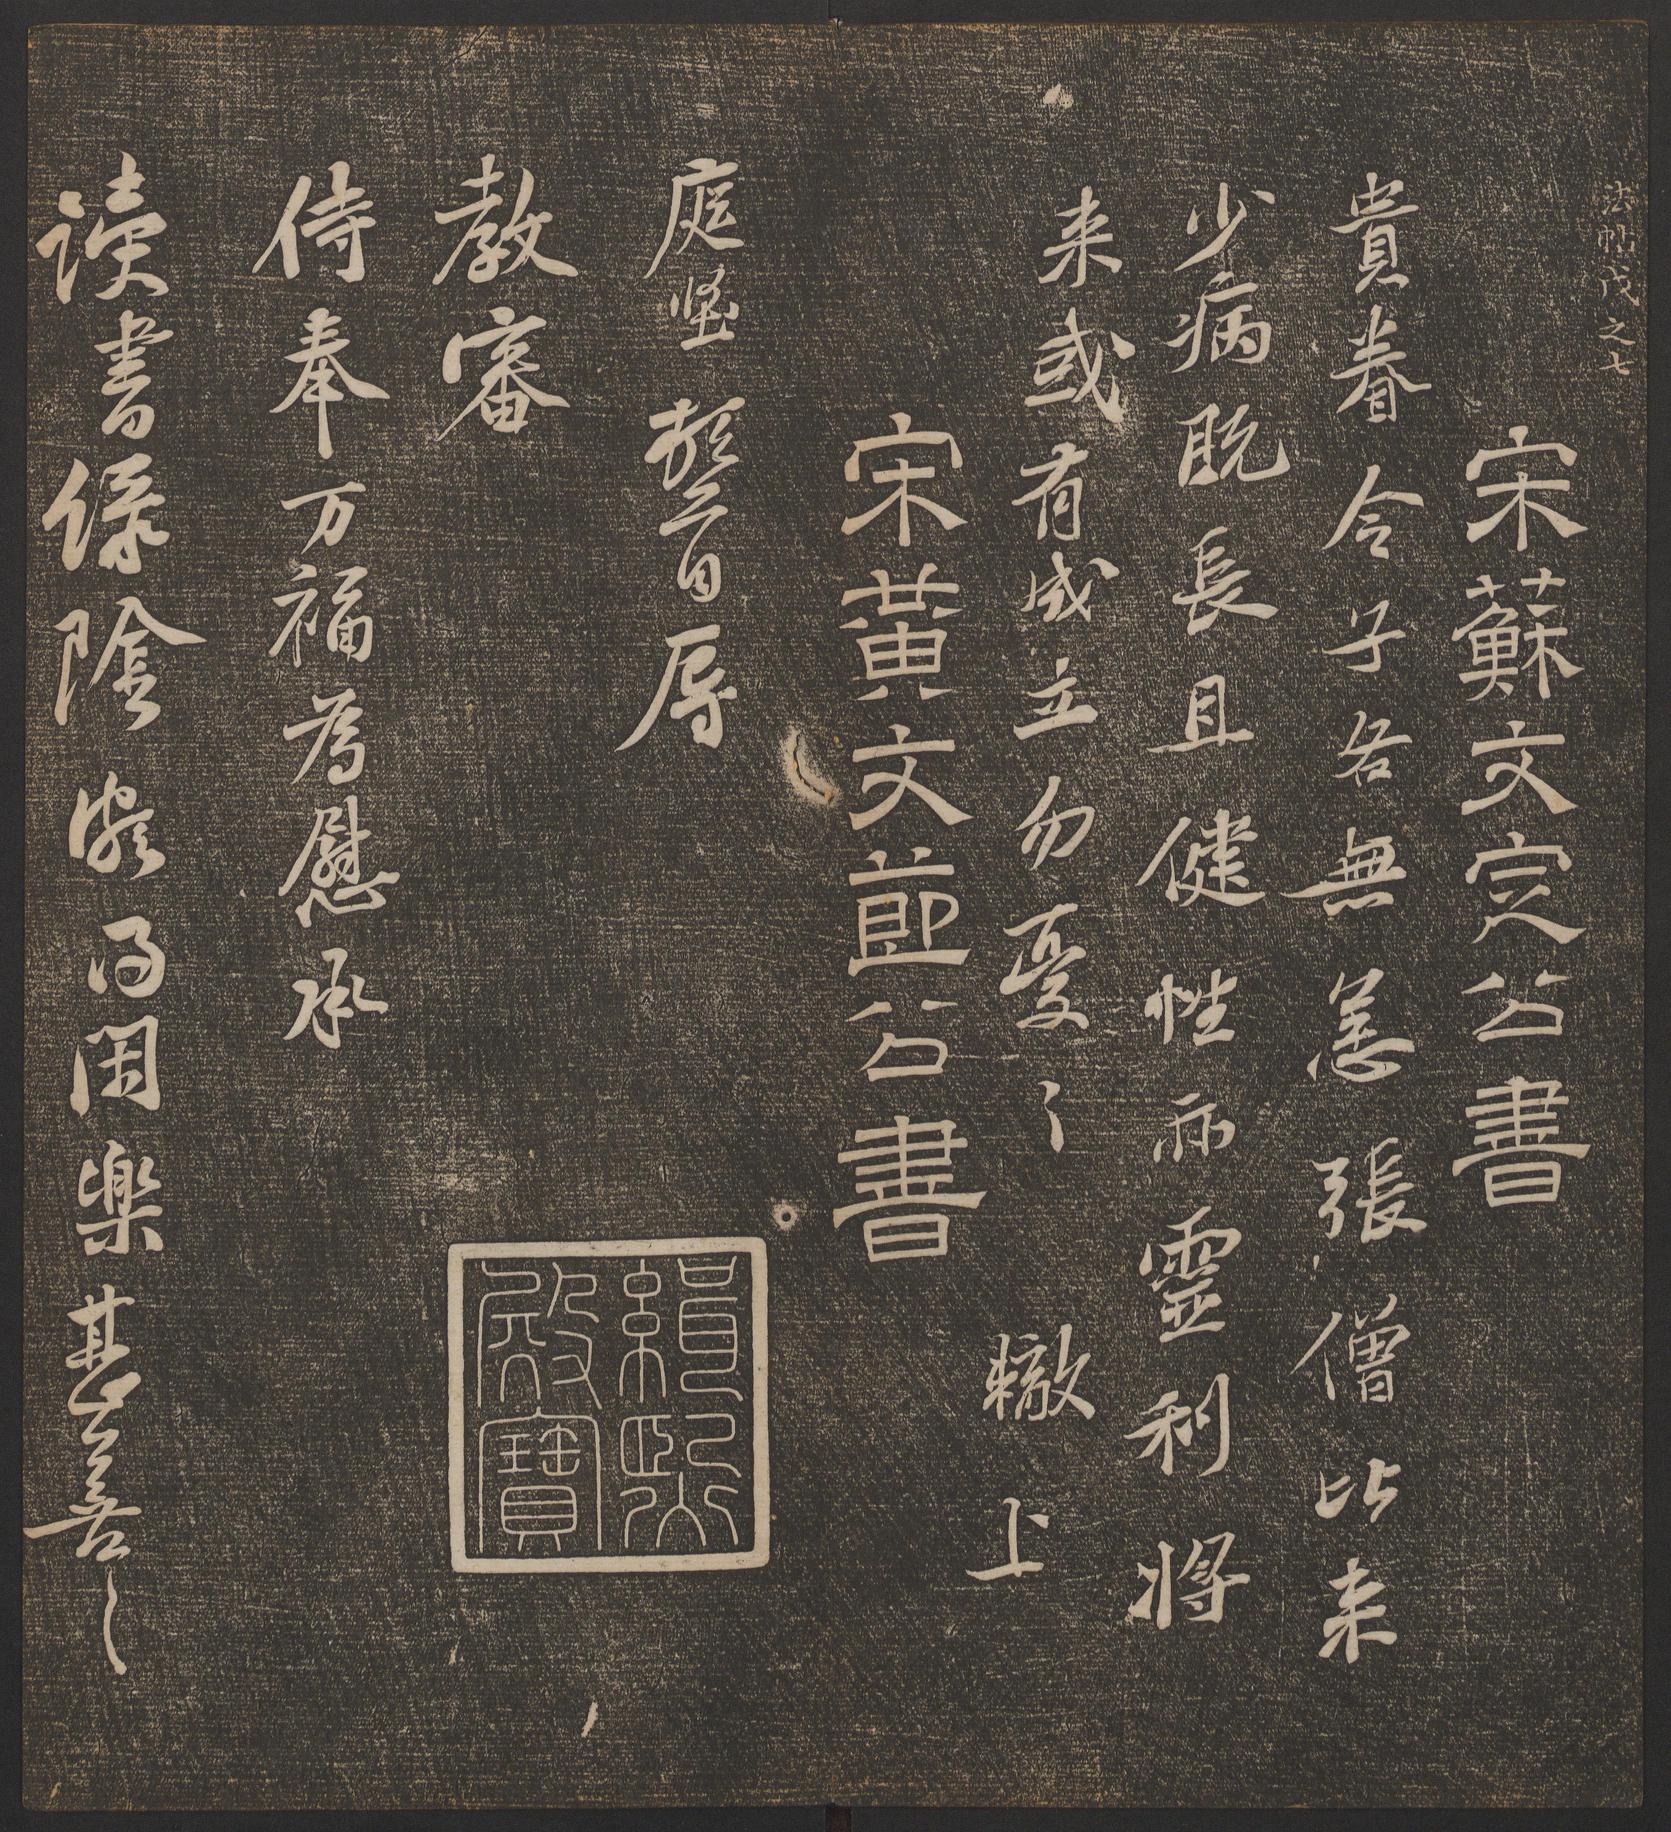 法帖戊之七
宋蘇文定公書
貴眷令子各無恙張僧比来
少病既長且健性亦靈利将
来或有成立勿憂〻
轍上
宋黄文節公書
庭堅頓首辱
教審
侍奉万福為慰承
读書緑陰頗得闲樂甚善〻
緝熙殿寶